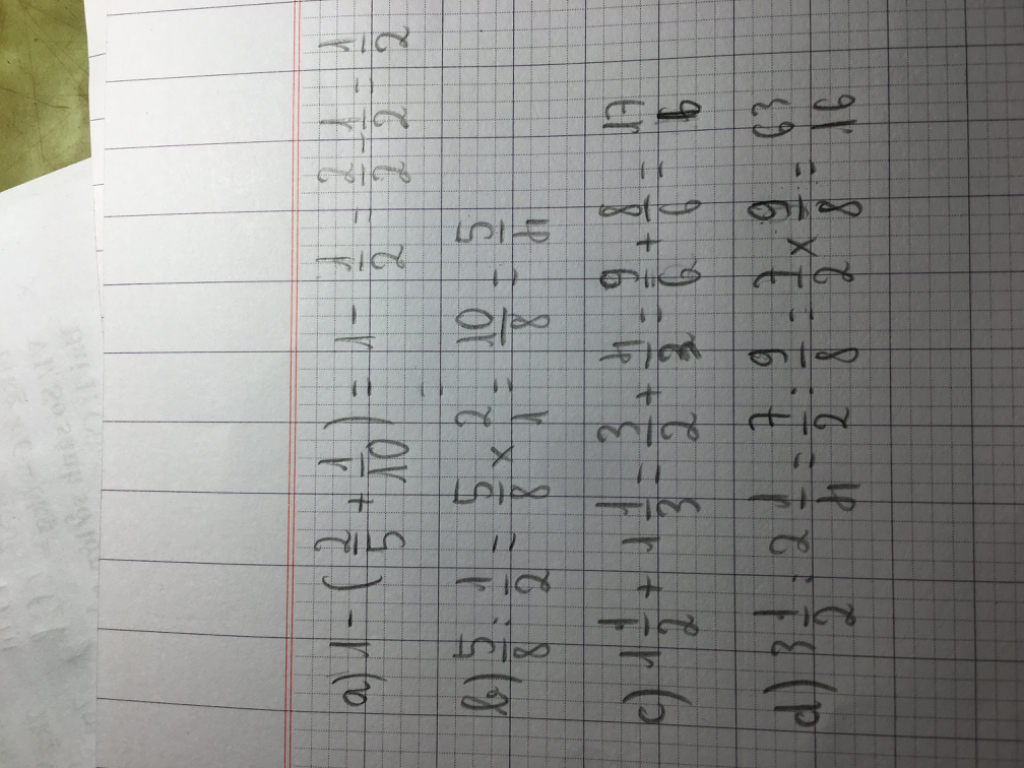 a) 1 - (2/5 + 1/10) = 1 - 1/2 = 2/2 - 1/2 = 1/2
b) 5/8 : 1/2 = 5/8 x 2/1 = 10/8 = 5/4
c) 1 1/2 + 1 1/3 = 3/2 + 4/3 = 9/6 + 8/6 = 17/6
d) 3 1/2 : 2 1/4 = 7/2 : 9/8 = 7/2 x 9/8 = 63/16